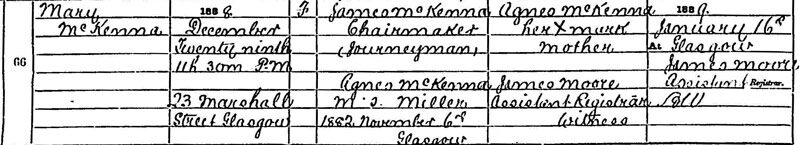 Mary 188 8. F James McKenna Agnes McKenna 1889.
McKenna December Chairmaker her X mark January 16th
Twenty ninth (Journeyman) mother At Glasgow
66 11h 30m P.M James Moore
Agnes McKenna James Moore Assistant Registrar.
23 Marshall M. S. Miller Assistant Registrar
Street Glasgow 1882 November 6th Witness
Glasgow